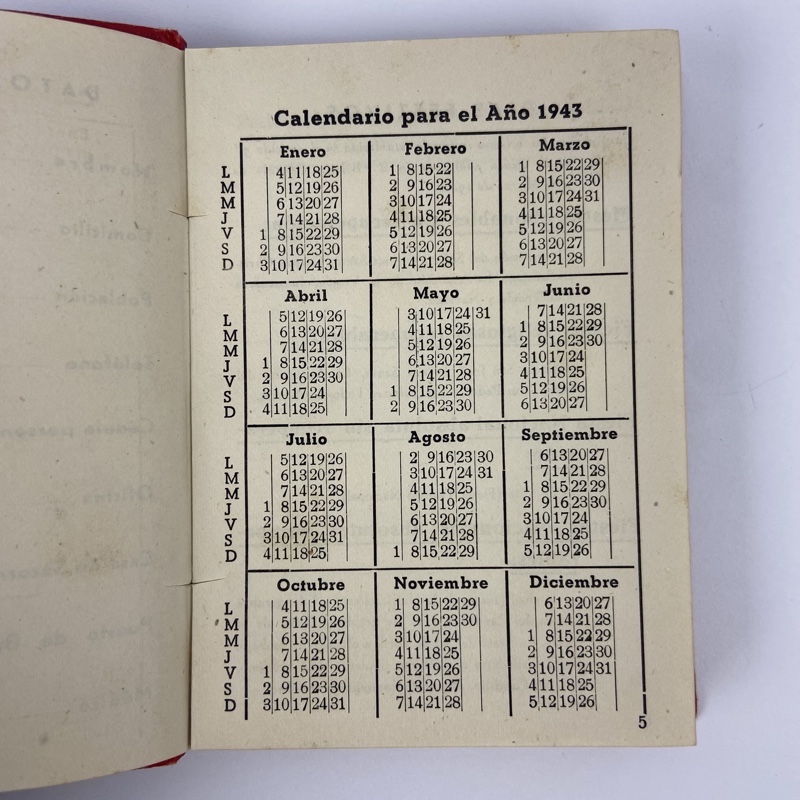 Calendario para el Año 1943
Enero Febrero Marzo
L 4 11 18 25 1 8 15 22 1 8 15 22 29
M 5 12 19 26 2 9 16 23 2 9 16 23 30
M 6 13 20 27 3 10 17 24 3 10 17 24 31
J 7 14 21 28 4 11 18 25 4 11 18 25
V 1 8 15 22 29 5 12 19 26 5 12 19 26
S 2 9 16 23 30 6 13 20 27 6 13 20 27
D 3 10 17 24 31 7 14 21 28 7 14 21 28
Abril Mayo Junio
L 5 12 19 26 3 10 17 24 31 7 14 21 28
M 6 13 20 27 4 11 18 25 1 8 15 22 29
M 7 14 21 28 5 12 19 26 2 9 16 23 30
J 1 8 15 22 29 6 13 20 27 3 10 17 24
V 2 9 16 23 30 7 14 21 28 4 11 18 25
S 3 10 17 24 1 8 15 22 29 5 12 19 26
D 4 11 18 25 2 9 16 23 30 6 13 20 27
Julio Agosto Septiembre
L 5 12 19 26 2 9 16 23 30 6 13 20 27
M 6 13 20 27 3 10 17 24 31 7 14 21 28
M 7 14 21 28 4 11 18 25 1 8 15 22 29
J 1 8 15 22 29 5 12 19 26 2 9 16 23 30
V 2 9 16 23 30 6 13 20 27 3 10 17 24
S 3 10 17 24 31 7 14 21 28 4 11 18 25
D 4 11 18 25 1 8 15 22 29 5 12 19 26
Octubre Noviembre Diciembre
L 4 11 18 25 1 8 15 22 29 6 13 20 27
M 5 12 19 26 2 9 16 23 30 7 14 21 28
M 6 13 20 27 3 10 17 24 1 8 15 22 29
J 7 14 21 28 4 11 18 25 2 9 16 23 30
V 1 8 15 22 29 5 12 19 26 3 10 17 24 31
S 2 9 16 23 30 6 13 20 27 4 11 18 25
D 3 10 17 24 31 7 14 21 28 5 12 19 26
5